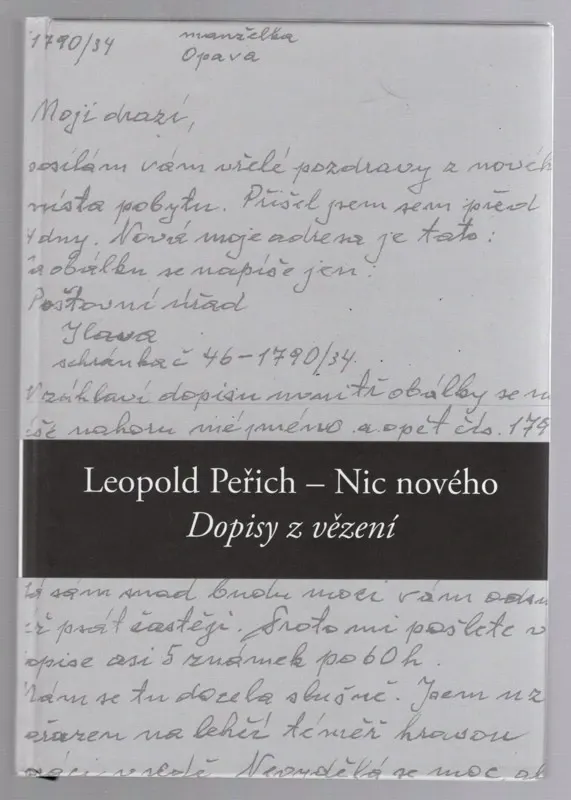 1790/34 manželka
Opava
Moji drazí,
posílám vám vřelé pozdravy z nového
místa pobytu. Přišel jsem sem před
4 dny. Nová moje adresa je tato:
na obálku se napíše jen:
Poštovní úřad
Ilava
schránka č 46-1790/34.
V záhlaví dopisu uvnitř obálky se na
íše nahoru mé jméno a opět čís. 179
Leopold Peřich – Nic nového
Dopisy z vězení
sám snad budu moci vám odsu
psát častěji. Proto mi pošlete v
opise asi 5 známek po 60 h.
Mám se tu docela slušně. Jsem už
ořazen na lehčí téměř hravou
práci vsedě. Nevydělá se moc al